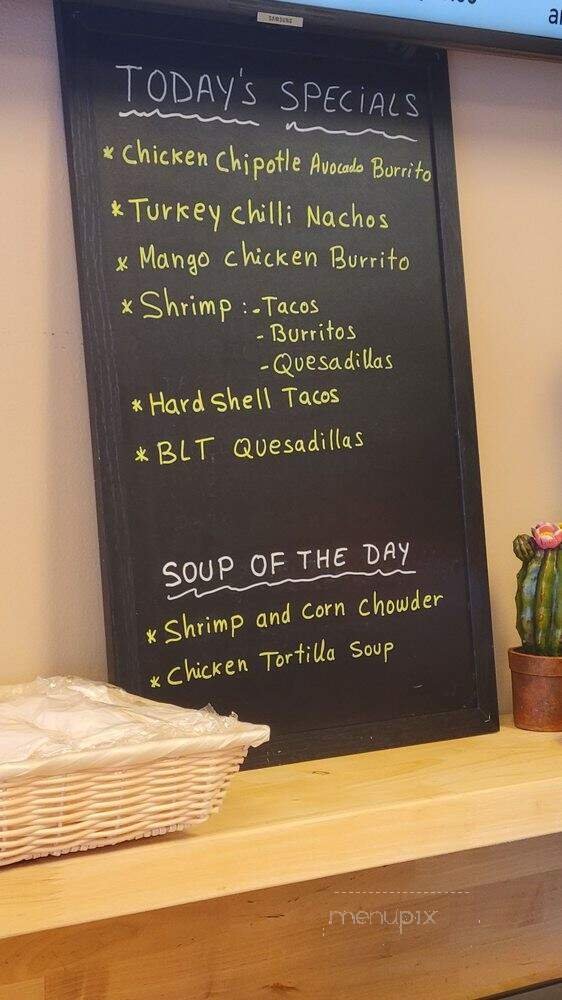 SAMSUNG
TODAY'S SPECIALS
* Chicken Chipotle Avocado Burrito
* Turkey Chilli Nachos
* Mango chicken Burrito
* Shrimp :- Tacos
- Burritos
- Quesadillas
* Hard Shell Tacos
* BLT Quesadillas
SOUP OF THE DAY
* Shrimp and Corn Chowder
* Chicken Tortilla Soup
menupix